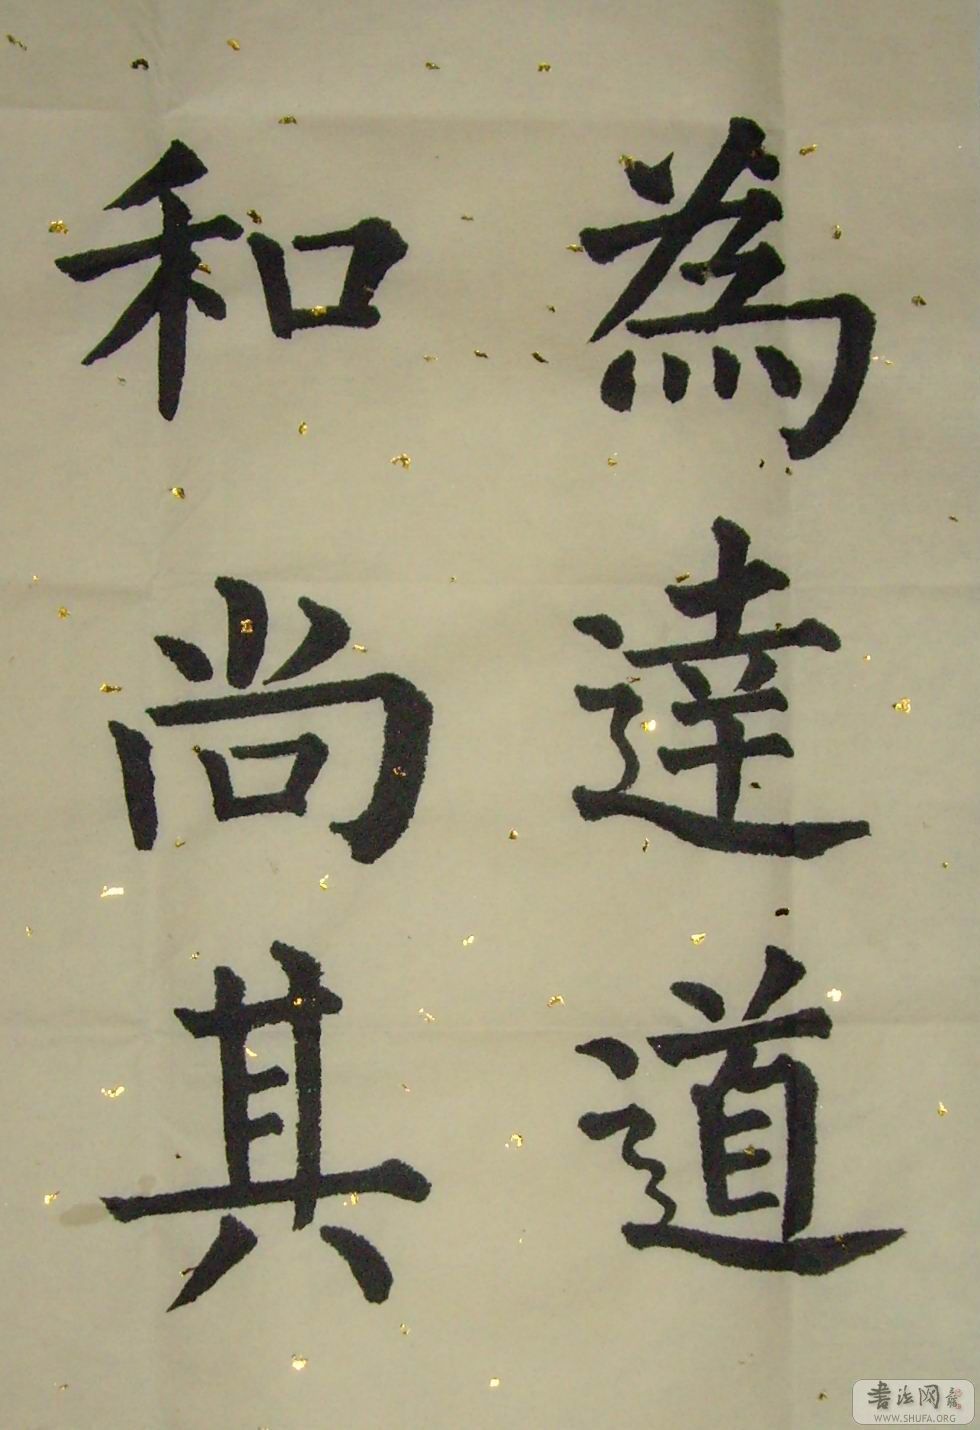 為達道
和尚其
書法网
WWW.SHUFA.ORG